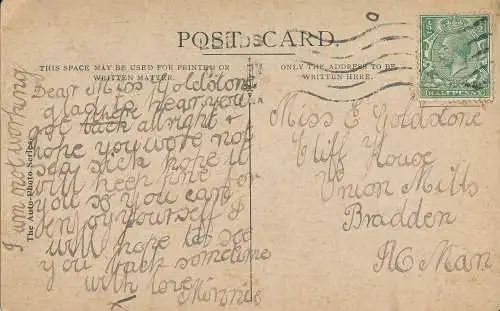 POST CARD.
THIS SPACE MAY BE USED FOR PRINTED OR
WRITTEN MATTER.
ONLY THE ADDRESS TO BE
WRITTEN HERE.
HALFPENNY
The Auto-Photo Series
Dear Miss Goldstone
glad to hear you
got back alright &
hope you were not
sea sick hope it
will keep fine for
you so you can
enjoy yourself I
will hope to see
you back sometime
with love
Minnie
X
I am not working
Miss E Goldstone
Cliff House
Union Mills
Bradden
IO Man